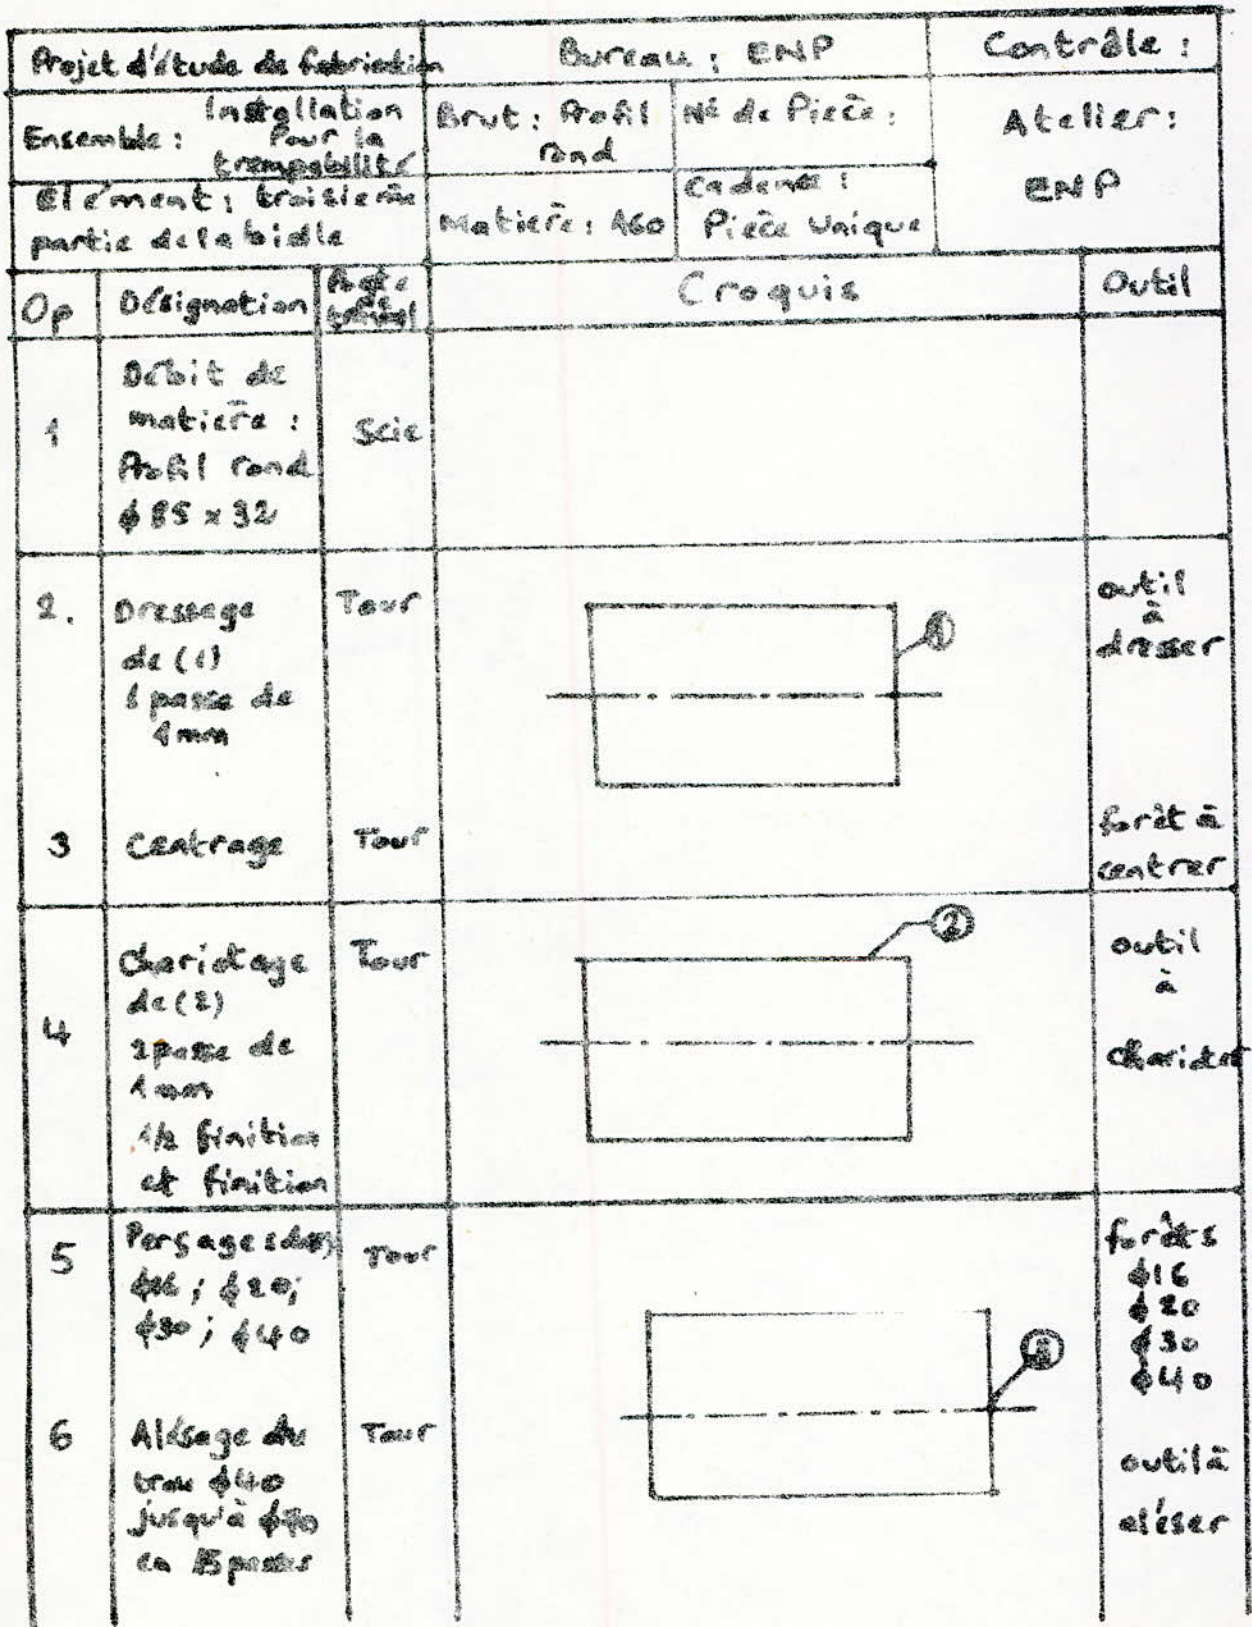 Projet d'étude de fabrication
Bureau : ENP
Contrôle :
Ensemble : Installation
Pour la
trempabilité
Brut : Profil
rond
N° de Pièce :
Atelier :
ENP
Elément : troisième
partie de la bielle
Matière : A60
Cadence :
Pièce Unique
Op
Désignation
Poste
travail
Croquis
Outil
1
Débit de
matière :
Profil rond
ϕ 85 x 32
Scie
2.
Dressage
de (1)
1 passe de
1 mm
Tour
1
outil
à
dresser
3
Centrage
Tour
forêt à
centrer
4
Chariotage
de (2)
2 passe de
1 mm
1/2 finition
et finition
Tour
2
outil
à
charioter
5
Perçage
ϕ16 ; ϕ20;
ϕ30 ; ϕ40
Tour
forêts
ϕ16
ϕ20
ϕ30
ϕ40
6
Alésage du
trou ϕ40
jusqu'à ϕ70
en 15 passes
Tour
outil à
aléser